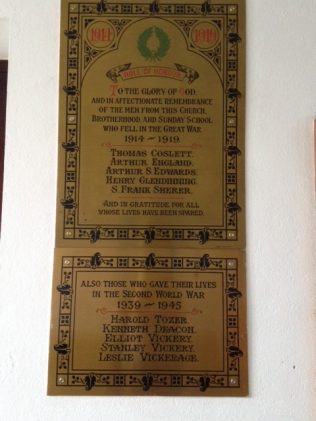 1914 1919
ROLL OF HONOUR
TO THE GLORY OF GOD
AND IN AFFECTIONATE REMEMBRANCE
OF THE MEN FROM THIS CHURCH,
BROTHERHOOD, AND SUNDAY SCHOOL
WHO FELL IN THE GREAT WAR
1914 — 1919.
THOMAS COSLETT.
ARTHUR ENGLAND.
ARTHUR S. EDWARDS.
HENRY GLENDINNING.
S. FRANK SHERER.
AND IN GRATITUDE FOR ALL
WHOSE LIVES HAVE BEEN SPARED.
ALSO THOSE WHO GAVE THEIR LIVES
IN THE SECOND WORLD WAR
1939 — 1945
HAROLD TOZER.
KENNETH DEACON.
ELLIOT VICKERY.
STANLEY VICKERY.
LESLIE VICKERAGE.